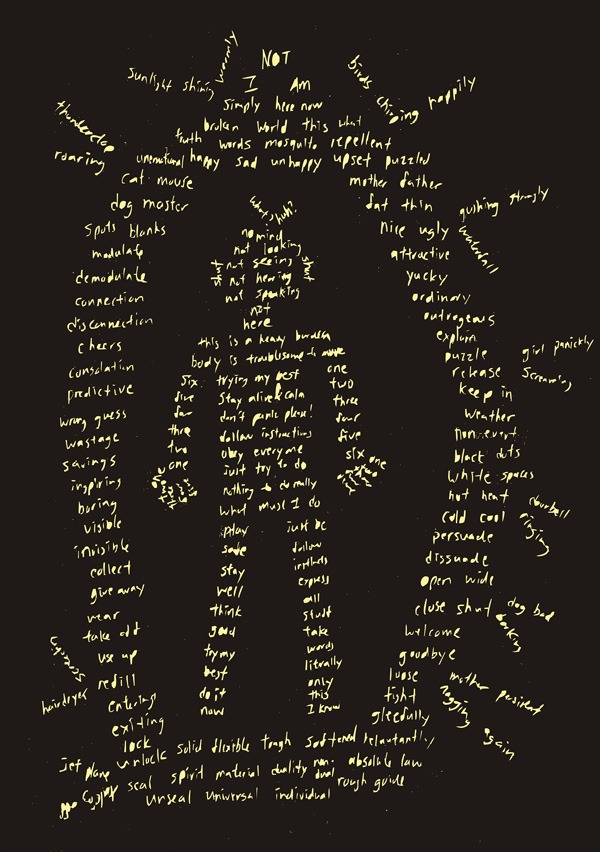 NOT
I Am
simply here now
broken world this what
truth words mosquito repellent
unemotional happy sad unhappy upset puzzled
warmly
sunlight shining
birds chirping happily
thunderclap
roaring
cat mouse
dog master
spots blanks
modulate
demodulate
connection
disconnection
cheers
consolation
predictive
wrong guess
wastage
savings
inspiring
boring
visible
invisible
collect
give away
wear
take off
use up
refill
entering
exiting
lock
unlock solid flexible tough softened reluctantly
seal spirit material duality non-dual absolute law
unseal universal individual rough guide
hairdryer
jet plane
mother father
fat thin
nice ugly
attractive
yucky
ordinary
outrageous
explain
puzzle
release
keep in
weather
nonevent
black dots
white spaces
hot heat
cold cool
persuade
dissuade
open wide
close shut
welcome
goodbye
loose
tight
gleefully
gushing strongly
waterfall
girl panickly
screaming
doorbell
ringing
dog bad
barking
mother persistent
nagging
again
what's huh?
no mind
not looking
shut not seeing shut
not hearing
not speaking
not
here
this is a heavy burden
body is troublesome to move
trying my best
stay alive & calm
don't panic please!
follow instructions
obey everyone
just try to do
nothing to do really
what must I do
six
five
four
three
two
one
one
two
three
four
five
six
one
play
safe
stay
well
think
good
try my
best
do it
now
just be
follow
instincts
express
all
stuff
take
words
literally
only
this
I know